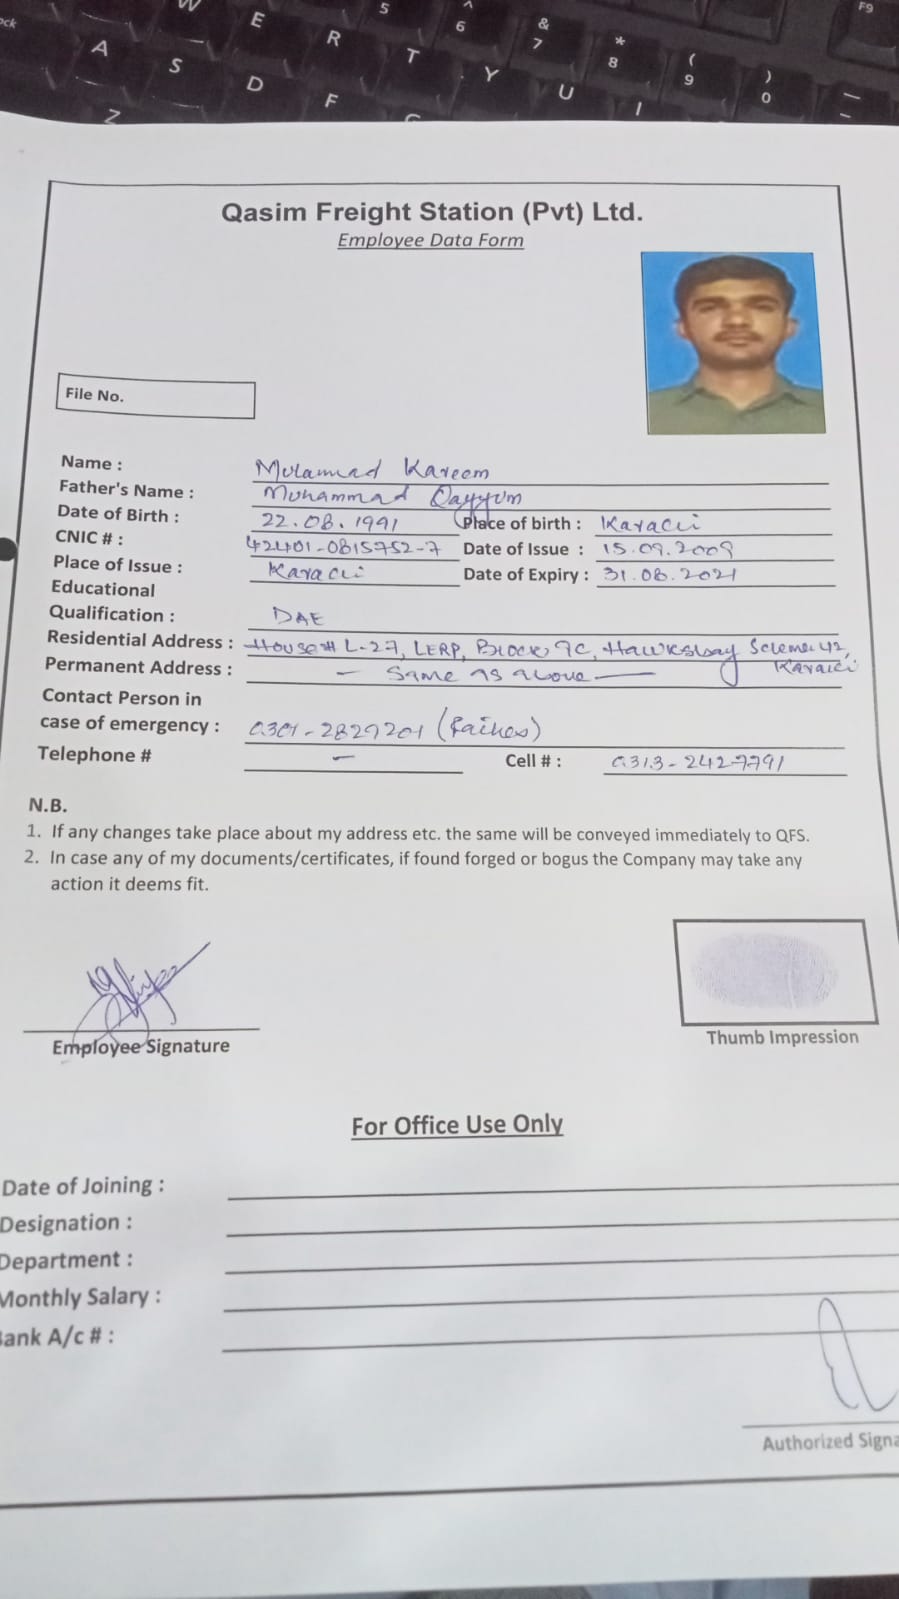 W E R 5 ^ 6 & 7 * 8 ( 9 ) 0 F9
A S D F T Y U I
Z
Qasim Freight Station (Pvt) Ltd.
Employee Data Form
File No.
Name : Muhammad Kareem
Father's Name : Muhammad Qayyum
Date of Birth : 22.08.1991 Place of birth : Karachi
CNIC # : 42401-0815752-7 Date of Issue : 15.09.2009
Place of Issue : Karachi Date of Expiry : 31.08.2021
Educational
Qualification : DAE
Residential Address : House# L-27, LERP, Block 7C, Hawksbay Scheme 42,
Karachi
Permanent Address : — Same as above —
Contact Person in
case of emergency : 0301-2827201
Telephone # — Cell # : 0313-2427791
N.B.
1. If any changes take place about my address etc. the same will be conveyed immediately to QFS.
2. In case any of my documents/certificates, if found forged or bogus the Company may take any
action it deems fit.
Employee Signature
Thumb Impression
For Office Use Only
Date of Joining :
Designation :
Department :
Monthly Salary :
Bank A/c # :
Authorized Signa